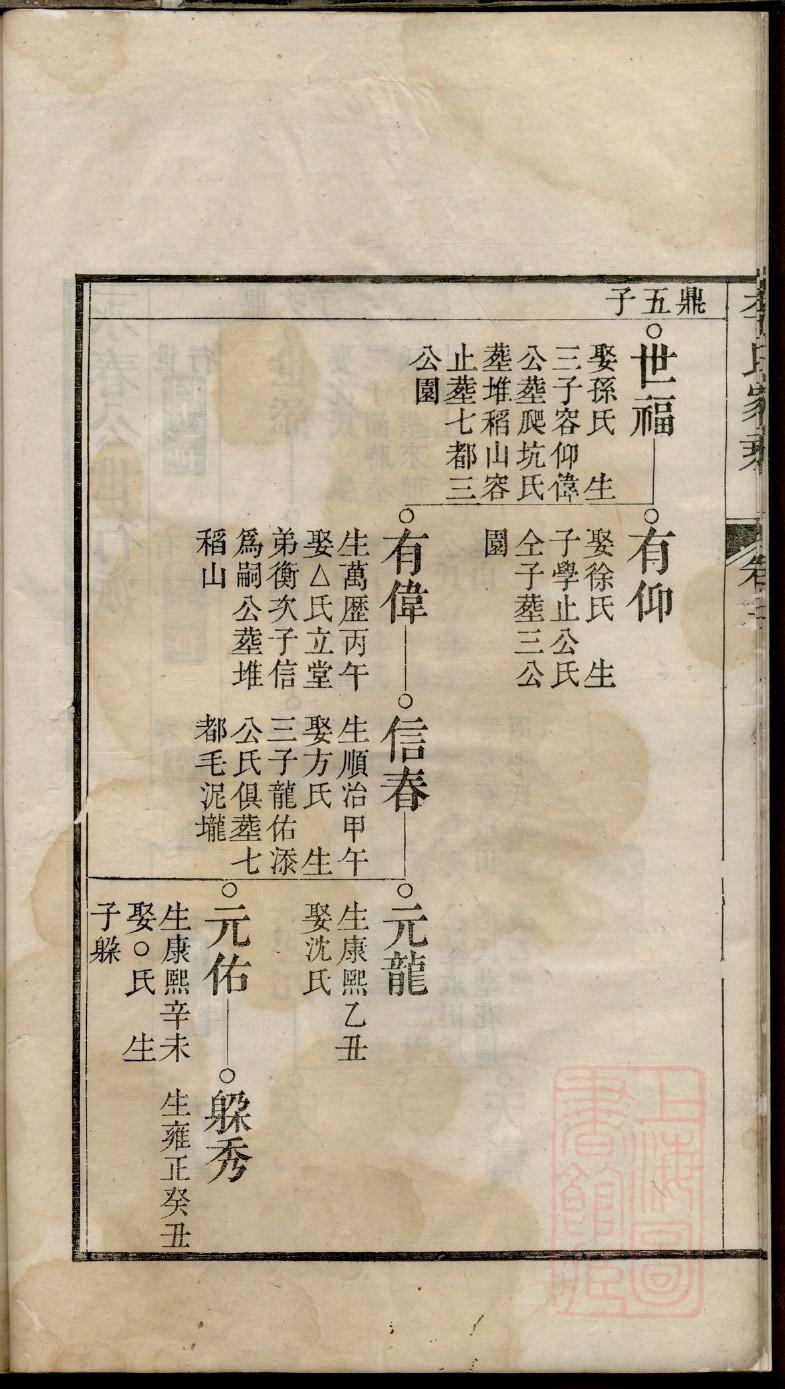 李氏家乘 卷
鼎五子
世福
娶孫氏 生
三子容仰偉
公塟爬坑氏
塟堆稻山容
止塟七都三
公園
有仰
娶徐氏 生
子學止公氏
仝子塟三公
園
有偉
生萬歷丙午
娶△氏立堂
弟衡次子信
爲嗣公塟堆
稻山
信春
生順治甲午
娶方氏 生
三子龍佑添
公氏俱塟七
都毛泥壠
元龍
生康熙乙丑
娶沈氏
元佑
生康熙辛未
娶○氏 生
子躲
躲秀
生雍正癸丑
上海圖
書館藏